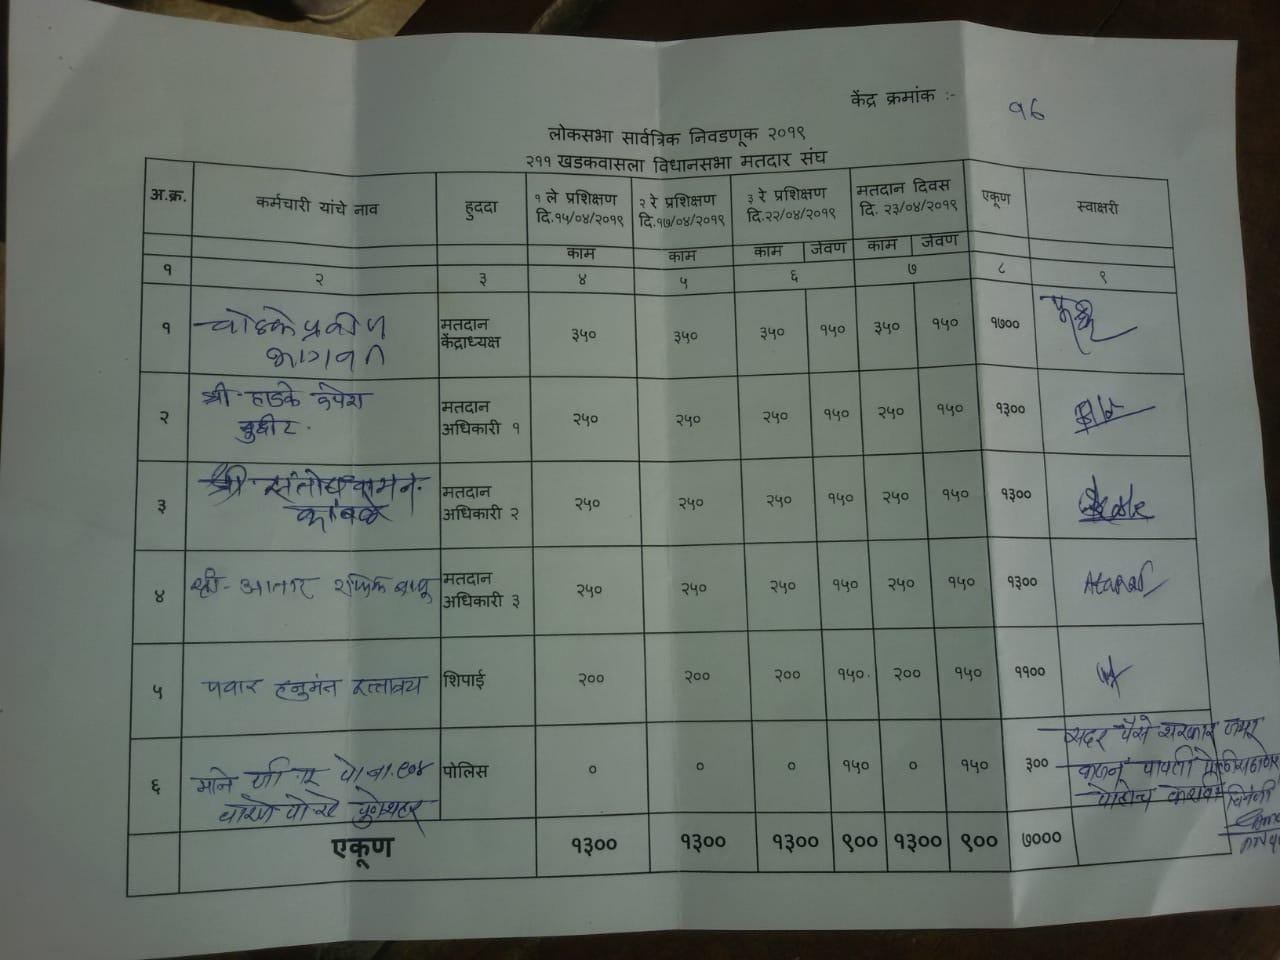 केंद्र क्रमांक :- १६
लोकसभा सार्वत्रिक निवडणूक २०१९
२११ खडकवासला विधानसभा मतदार संघ
अ.क्र. कर्मचारी यांचे नाव हुददा १ ले प्रशिक्षण दि.१५/०४/२०१९ २ रे प्रशिक्षण दि.१७/०४/२०१९ ३ रे प्रशिक्षण दि.२२/०४/२०१९ मतदान दिवस दि. २३/०४/२०१९ एकूण स्वाक्षरी
काम काम काम जेवण काम जेवण
१ २ ३ ४ ५ ६ ७ ८ ९
१ मतदान केंद्राध्यक्ष ३५० ३५० ३५० १५० ३५० १५० १७००
२ श्री मतदान अधिकारी १ २५० २५० २५० १५० २५० १५० १३००
३ श्री संतोष वामन कांबळे मतदान अधिकारी २ २५० २५० २५० १५० २५० १५० १३००
४ श्री आतार मतदान अधिकारी ३ २५० २५० २५० १५० २५० १५० १३००
५ पवार हनुमंत दत्तात्रय शिपाई २०० २०० २०० १५० २०० १५० ११००
६ माने पोलिस ० ० ० १५० ० १५० ३००
सदर पैसे सरकार जमा
एकूण १३०० १३०० १३०० ९०० १३०० ९०० ७०००